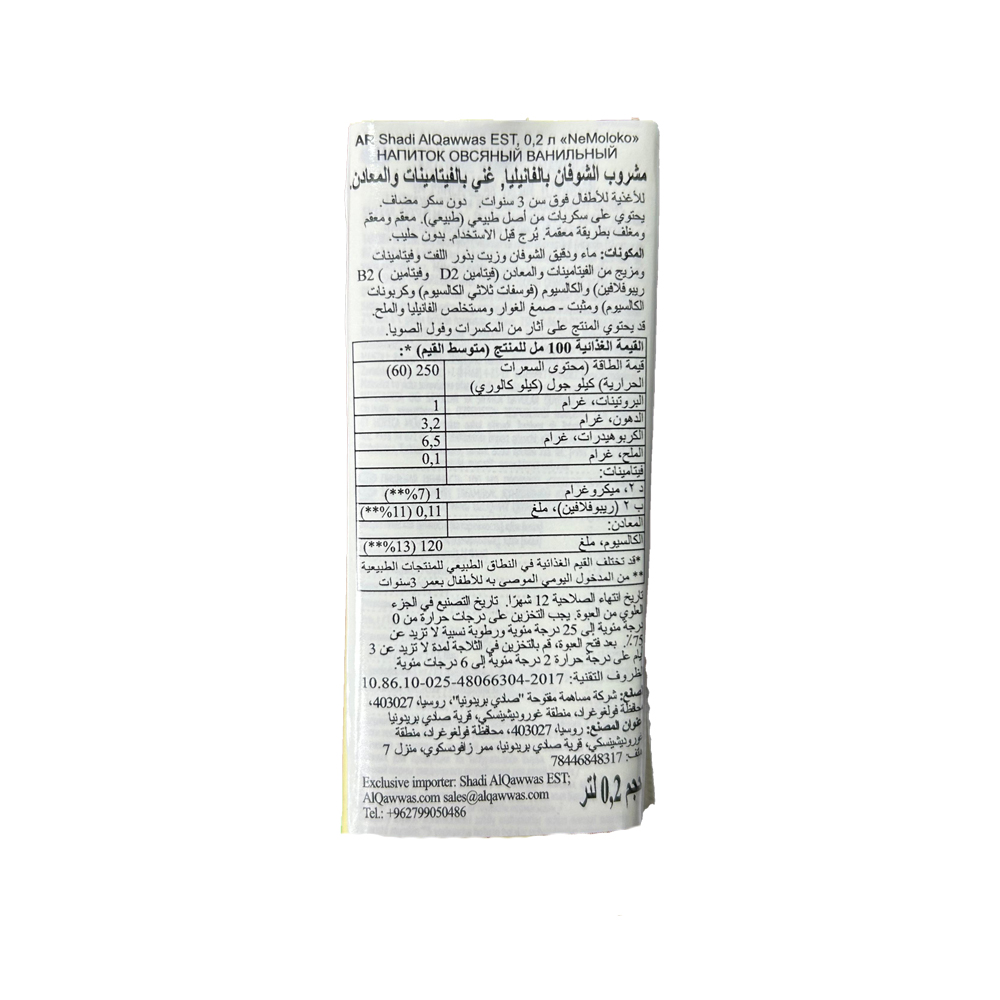 AR Shadi AlQawwas EST, 0,2 л «NeMoloko»
НАПИТОК ОВСЯНЫЙ ВАНИЛЬНЫЙ
مشروب الشوفان بالفانيليا, غني بالفيتامينات والمعادن.
للأغذية للأطفال فوق سن 3 سنوات. دون سكر مضاف.
يحتوي على سكريات من أصل طبيعي (طبيعي). معقم ومعقم
ومغلف بطريقة معقمة. يُرج قبل الاستخدام. بدون حليب.
المكونات: ماء ودقيق الشوفان وزيت بذور اللفت وفيتامينات
ومزيج من الفيتامينات والمعادن (فيتامين D2 وفيتامين B2 (
ريبوفلافين) والكالسيوم (فوسفات ثلاثي الكالسيوم) وكربونات
الكالسيوم) ومثبت - صمغ الغوار ومستخلص الفانيليا والملح.
قد يحتوي المنتج على أثار من المكسرات وفول الصويا.
القيمة الغذائية 100 مل للمنتج (متوسط القيم) *:
قيمة الطاقة (محتوى السعرات 250 (60)
الحرارية) كيلو جول (كيلو كالوري)
البروتينات، غرام 1
الدهون، غرام 3,2
الكربوهيدرات، غرام 6,5
الملح، غرام 0,1
فيتامينات:
د ٢، ميكروغرام 1 (7%**)
ب ٢ (ريبوفلافين)، ملغ 0,11 (11%**)
المعادن:
الكالسيوم، ملغ 120 (13%**)
*قد تختلف القيم الغذائية في النطاق الطبيعي للمنتجات الطبيعية
** من المدخول اليومي الموصى به للأطفال بعمر 3سنوات
تاريخ انتهاء الصلاحية 12 شهرًا. تاريخ التصنيع في الجزء
العلوي من العبوة. يجب التخزين على درجات حرارة من 0
درجة مئوية إلى 25 درجة مئوية ورطوبة نسبية لا تزيد عن
75٪. بعد فتح العبوة، قم بالتخزين في الثلاجة لمدة لا تزيد عن 3
أيام على درجة حرارة 2 درجة مئوية إلى 6 درجات مئوية.
الظروف التقنية: 10.86.10-025-48066304-2017
صانع: شركة مساهمة مفتوحة "صادي بريدونيا"، روسيا، 403027،
محافظة فولغوغراد، منطقة غوروديشينسكي، قرية صادي بريدونيا
عنوان المصنع: روسيا، 403027، محافظة فولغوغراد، منطقة
غوروديشينسكي، قرية صادي بريدونيا، ممر زافودسكوي، منزل 7
هاتف: 78446848317
حجم 0,2 لتر
Exclusive importer: Shadi AlQawwas EST;
AlQawwas.com sales@alqawwas.com
Tel.: +962799050486